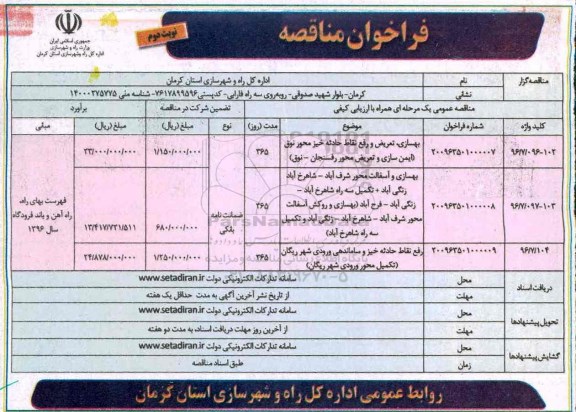 جمهوری اسلامی ایران
وزارت راه و شهرسازی
اداره کل راه و شهرسازی استان کرمان
فراخوان مناقصه
نوبت دوم
مناقصه‌گزار
نام
اداره کل راه و شهرسازی استان کرمان
نشانی
کرمان-بلوار شهید صدوقی- روبه‌روی سه راه فارابی- کدپستی ۷۶۱۷۸۹۹۵۹۶- شناسه ملی ۱۴۰۰۰۲۷۵۷۷۵
مناقصه عمومی یک مرحله‌ای همراه با ارزیابی کیفی
تضمین شرکت در مناقصه
برآورد
کلید واژه
شماره فراخوان
موضوع
مدت (روز)
نوع
مبلغ (ریال)
مبلغ (ریال)
مبانی
۹۶/۷/۰۹۶-۱۰۲
۲۰۰۹۶۳۵۰۱۰۰۰۰۰۷
بهسازی، تعریض و رفع نقاط حادثه خیز محور نوق
(ایمن سازی و تعریض محور رفسنجان - نوق)
۳۶۵
ضمانت نامه
بانکی
۱/۱۵۰/۰۰۰/۰۰۰
۲۳/۰۰۰/۰۰۰/۰۰۰
فهرست بهای راه،
راه آهن و باند فرودگاه
سال ۱۳۹۶
۹۶/۷/۰۹۷-۱۰۳
۲۰۰۹۶۳۵۰۱۰۰۰۰۰۸
بهسازی و آسفالت محور شرف آباد - شاهرخ آباد
زنگی آباد + تکمیل سه راه شاهرخ آباد -
زنگی آباد - فرح آباد (بهسازی و روکش آسفالت
محور شرف آباد - شاهرخ آباد - زنگی آباد و تکمیل
سه راه شاهرخ آباد)
۳۶۵
۶۸۰/۰۰۰/۰۰۰
۱۳/۴۱۷/۷۳۱/۵۱۱
۹۶/۷/۱۰۴
۲۰۰۹۶۳۵۰۱۰۰۰۰۰۹
رفع نقاط حادثه خیز و ساماندهی ورودی شهر ریگان
(تکمیل محور ورودی شهر ریگان)
۳۶۵
۱/۲۵۰/۰۰۰/۰۰۰
۲۴/۸۷۸/۰۰۰/۰۰۰
دریافت اسناد
محل
سامانه تدارکات الکترونیکی دولت www.setadiran.ir
مهلت
از تاریخ نشر آخرین آگهی به مدت حداقل یک هفته
تحویل پیشنهادها
محل
سامانه تدارکات الکترونیکی دولت www.setadiran.ir
مهلت
از آخرین روز مهلت دریافت اسناد، به مدت دو هفته
گشایش پیشنهادها
محل
سامانه تدارکات الکترونیکی دولت www.setadiran.ir
زمان
طبق اسناد مناقصه
روابط عمومی اداره کل راه و شهرسازی استان کرمان